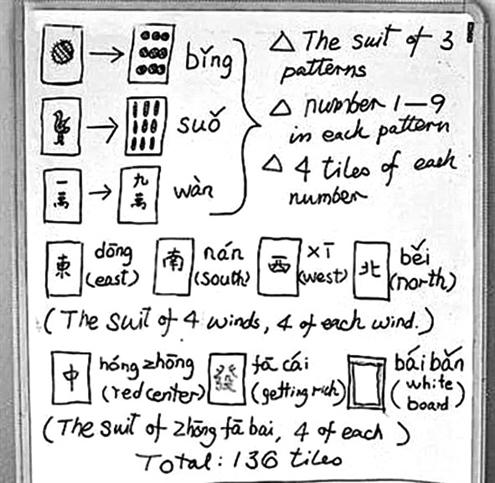 bǐng
△ The suit of 3
patterns
suǒ
△ number 1—9
in each pattern
一萬 → 九萬 wàn
△ 4 tiles of each
number
東 dōng (east) 南 nán (south) 西 xī (west) 北 běi (north)
(The suit of 4 winds, 4 of each wind.)
中 hóng zhōng (red center) 發 fā cái (getting rich) bái bǎn (white board)
(The suit of zhōng fā bai, 4 of each)
Total: 136 tiles